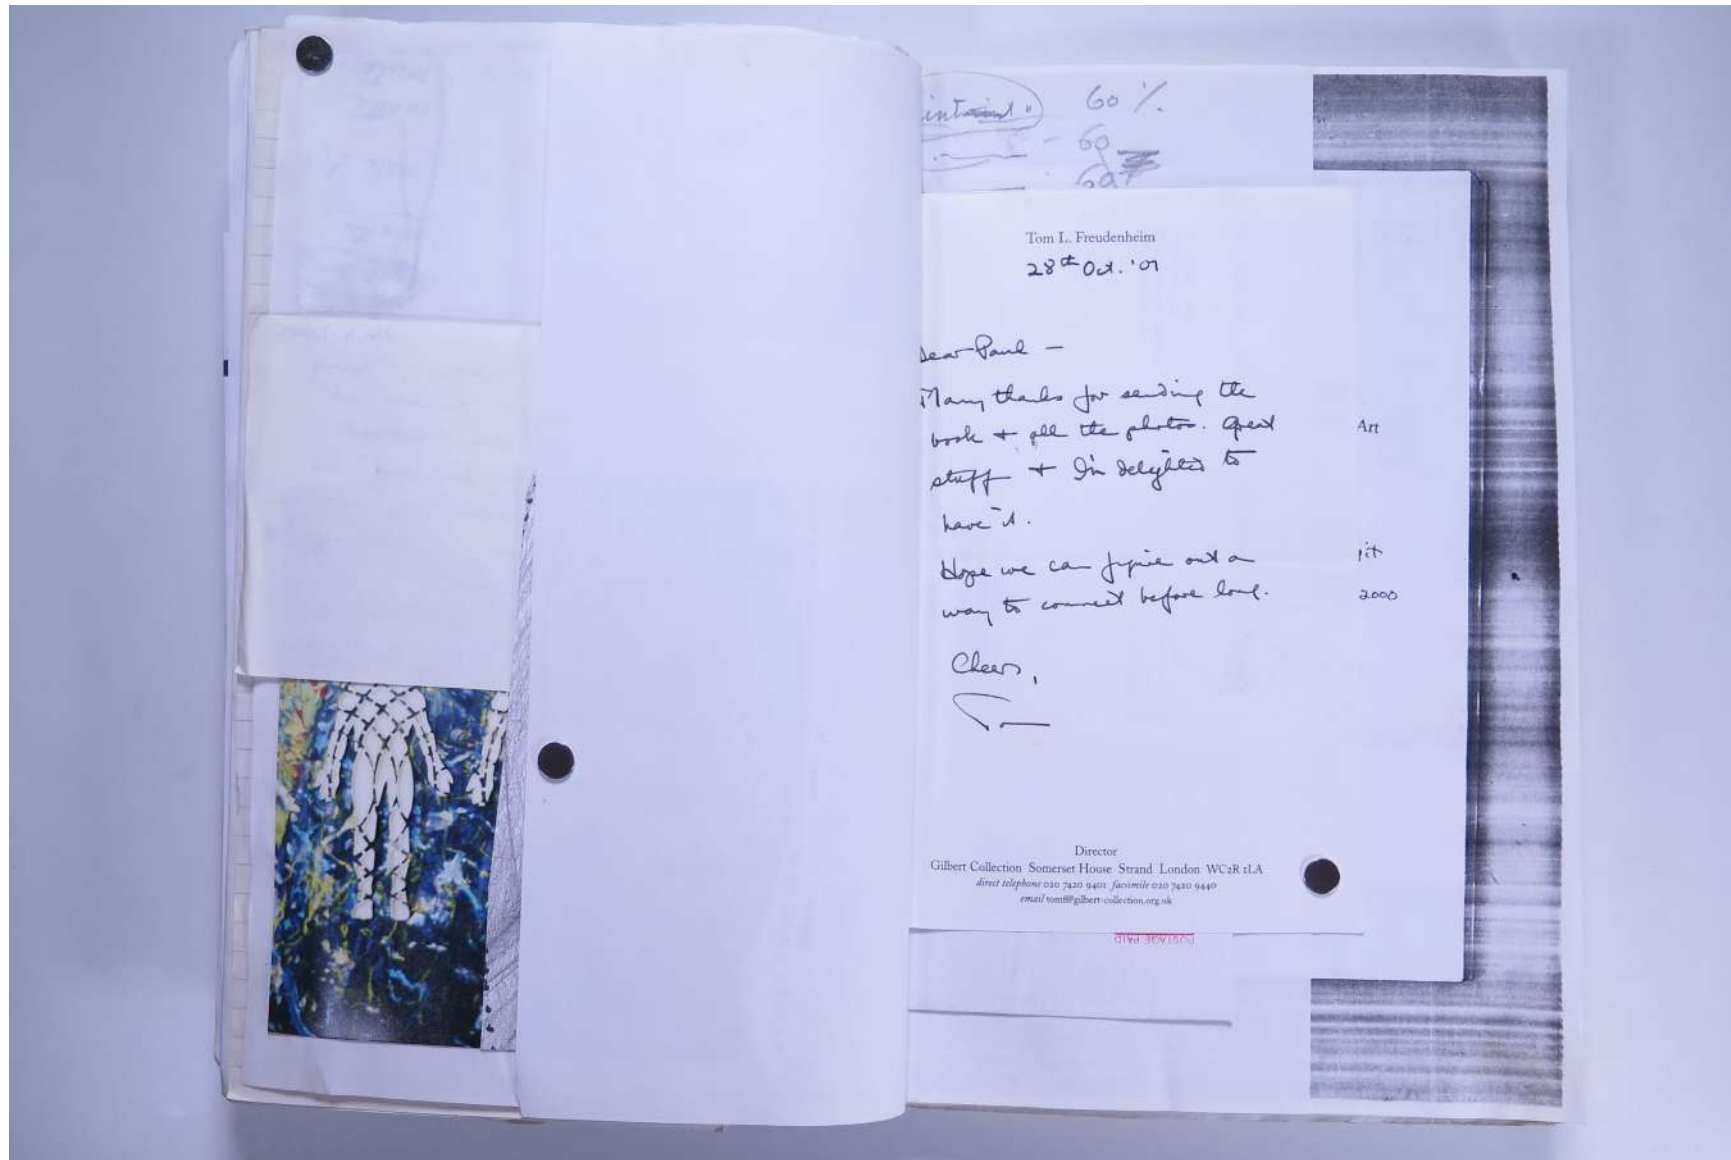 60 %
60
60
Tom L. Freudenheim
28th Oct. '01
Dear Paul —
Many thanks for sending the
book + all the photos. Great
stuff + I'm delighted to
have it.
Hope we can figure out a
way to connect before long.
Cheers,
Tom
Art
2000
Director
Gilbert Collection Somerset House Strand London WC2R 1LA
direct telephone 020 7420 9401 facsimile 020 7420 9440
email tomf@gilbert-collection.org.uk
POSTAGE PAID